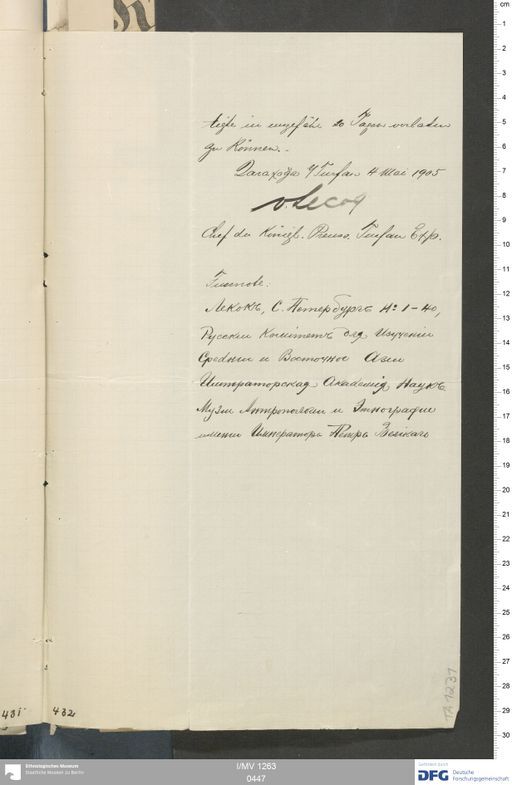 tigte in ungefähr 20 Tagen verladen
zu können.-
Qaraxoja b/Turfan 4 Mai 1905
v. Lecoq
Chef der Königl. Preuss. Turfan Exp.
Fussnote:
Лекокъ, С. Петербургъ № 1-40,
Русскій Комитетъ для Изученія
Средній и Восточное Азіи
Императорская Академія Наукъ
Музеи Антропологіи и Этнографіи
имени Императора Петра Великаго
431
432
TA 1231
Ethnologisches Museum
Staatliche Museen zu Berlin
I/MV 1263
0447
Gefördert durch
DFG Deutsche
Forschungsgemeinschaft
cm
1
2
3
4
5
6
7
8
9
10
11
12
13
14
15
16
17
18
19
20
21
22
23
24
25
26
27
28
29
30